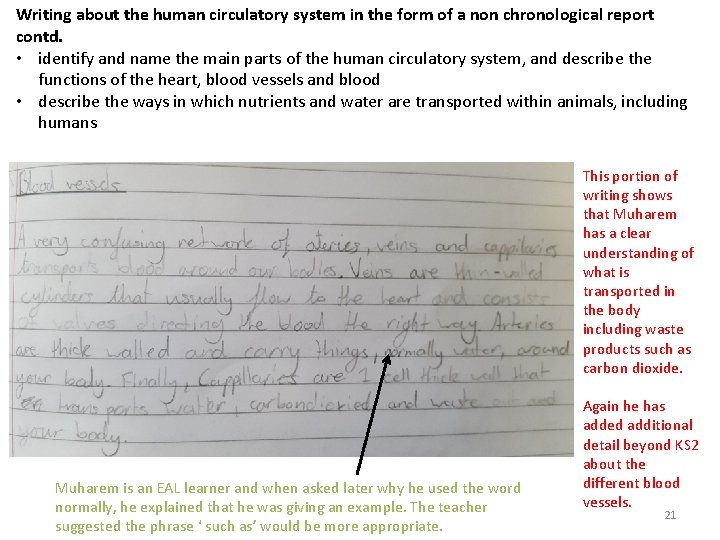 Writing about the human circulatory system in the form of a non chronological report
contd.
• identify and name the main parts of the human circulatory system, and describe the
functions of the heart, blood vessels and blood
• describe the ways in which nutrients and water are transported within animals, including
humans
Blood vessels
A very confusing network of ateries, veins and cappilaries
transports blood around our bodies. Veins are thin-walled
cylinders that usually flow to the heart and consists
of valves directing the blood the right way. Arteries
are thick walled and carry things, normally water, around
your body. Finally, Cappillaries are 1 cell thick wall that
transports water, and waste out and
your body.
This portion of
writing shows
that Muharem
has a clear
understanding of
what is
transported in
the body
including waste
products such as
carbon dioxide.
Again he has
added additional
detail beyond KS2
about the
different blood
vessels.
Muharem is an EAL learner and when asked later why he used the word
normally, he explained that he was giving an example. The teacher
suggested the phrase ‘ such as’ would be more appropriate.
21